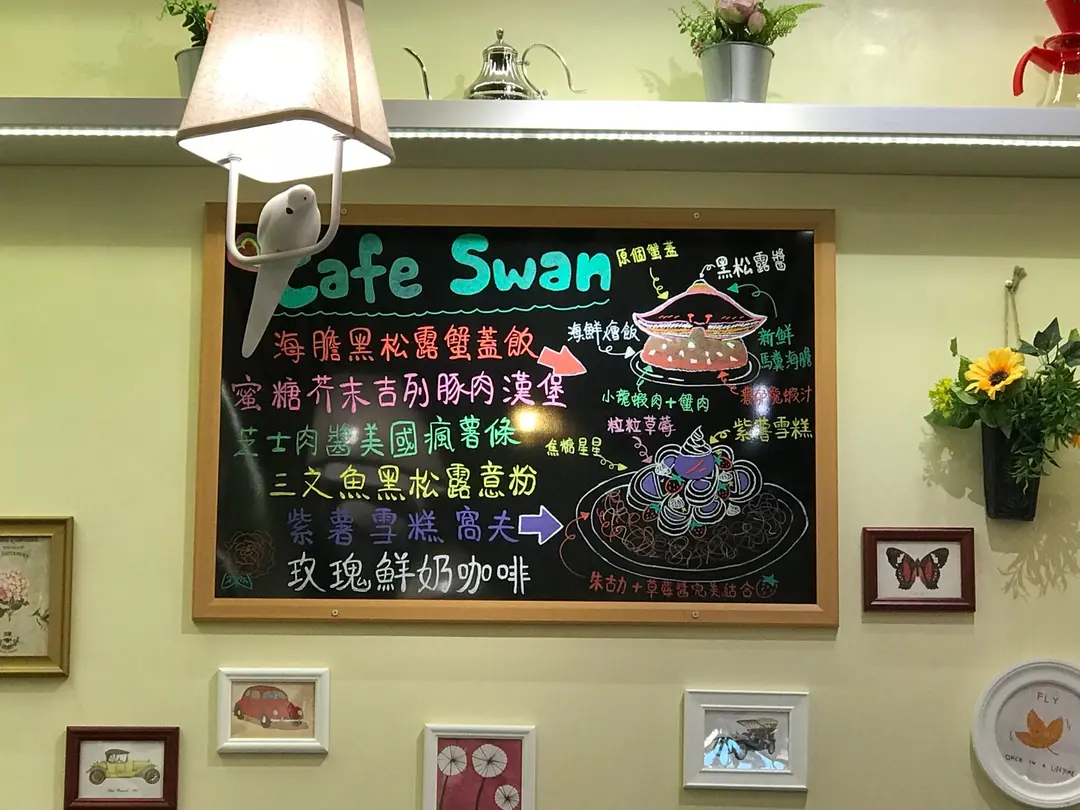 Cafe Swan
海膽黑松露蟹蓋飯
蜜糖芥末吉列豚肉漢堡
芝士肉醬美國瘋薯條
三文魚黑松露意粉
紫薯雪糕窩夫
玫瑰鮮奶咖啡
原個蟹蓋
黑松露醬
海鮮燴飯
新鮮
馬糞海膽
小龍蝦肉+蟹肉
濃郁龍蝦汁
粒粒草莓
紫薯雪糕
焦糖星星
朱古力+草莓醬完美結合
FLY
ONCE IN A LIFETIME